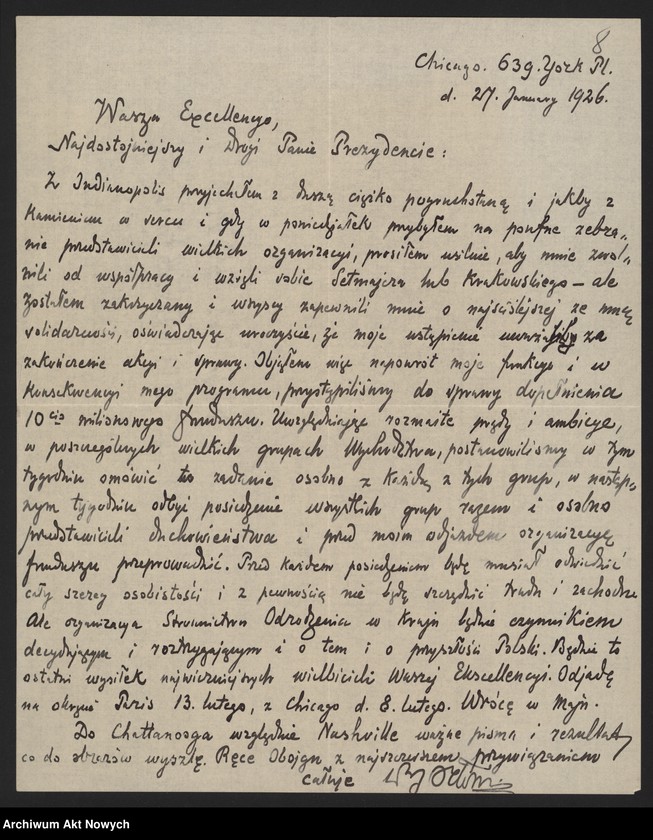 8
Chicago. 639. York Pl.
d. 27. January 1926.
Wasza Excellencyo,
Najdostojniejszy i Drogi Panie Prezydencie:
Z Indianopolis przyjechałem z duszą ciężko pogruchotaną i jakby z
kamieniem w sercu i gdy w poniedziałek przybyłem na poufne zebra„
nie przedstawicieli wielkich organizacyi, prosiłem usilnie, aby mnie zwol„
nili od współpracy i wzięli sobie Setmajera lub Krakowskiego – ale
zostałem zakrzyczany i wszyscy zapewnili mnie o najściślejszej ze mną
solidarności, oświadczając uroczyście, że moje ustąpienie za
zakończenie akcyi i sprawy. Objąłem więc napowrót moje funkcye i w
konsekwencyi mego programu, przystąpiliśmy do sprawy dopełnienia
10cio milionowego funduszu. Uwzględniając rozmaite prądy i ambicye,
w poszczególnych wielkich grupach Wychodztwa, postanowiliśmy w tym
tygodniu omówić to zadanie osobno z każdą z tych grup, w następ„
nym tygodniu odbyć posiedzenie wszystkich grup razem i osobno
przedstawicieli duchowieństwa i przed moim odjazdem organizacyę
funduszu przeprowadzić. Przed każdem posiedzeniem będę musiał odwiedzić
cały szereg osobistości i z pewnością nie będę szczędzić trudu i zachodu
Ale organizacya Stronnictwa Odrodzenia w Kraju będzie czynnikiem
decydującym i roztrzygającym i o tem i o przyszłości Polski. Będzie to
ostatni wysiłek najwierniejszych wielbicieli Waszej Ekscellencyi. Odjadę
na okręcie Paris 13. lutego, z Chicago d. 8. lutego. Wrócę w Maju.
Do Chattanooga względnie Nashville ważne pisma i rezultaty
co do obrazów wyszlę. Ręce Obojga z najszczerszem przywiązaniem
całuje
Archiwum Akt Nowych